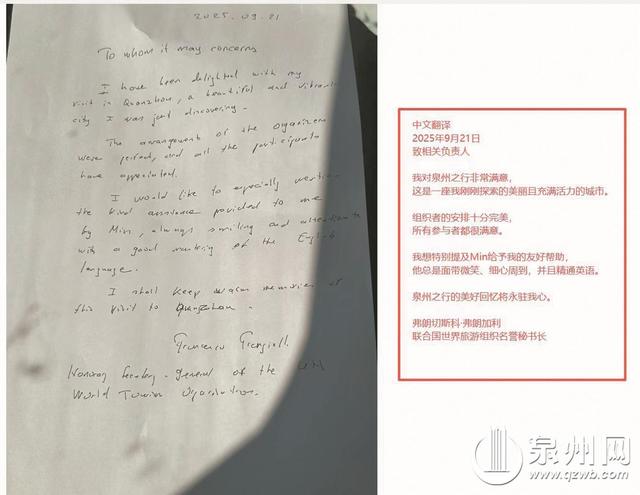 2025.09.21
To whom it may concerns
I have been delighted with my
visit in Quanzhou, a beautiful and vibrant
city I was just discovering.
The arrangements of the organizers
were perfect, and all the participants
have appreciated.
I would like to especially mention
the kind assistance provided to me
by Min, always smiling and attentive
with a good mastering of the English
language.
I shall keep warm memories of
this visit to Quanzhou.
Francesco
Honorary Secretary-General of the UN
World Tourism Organization.
中文翻译
2025年9月21日
致相关负责人
我对泉州之行非常满意,
这是一座我刚刚探索的美丽且充满活力的城市。
组织者的安排十分完美,
所有参与者都很满意。
我想特别提及Min给予我的友好帮助,
他总是面带微笑、细心周到,并且精通英语。
泉州之行的美好回忆将永驻我心。
弗朗切斯科·弗朗加利
联合国世界旅游组织名誉秘书长
泉州网
www.qzwb.com